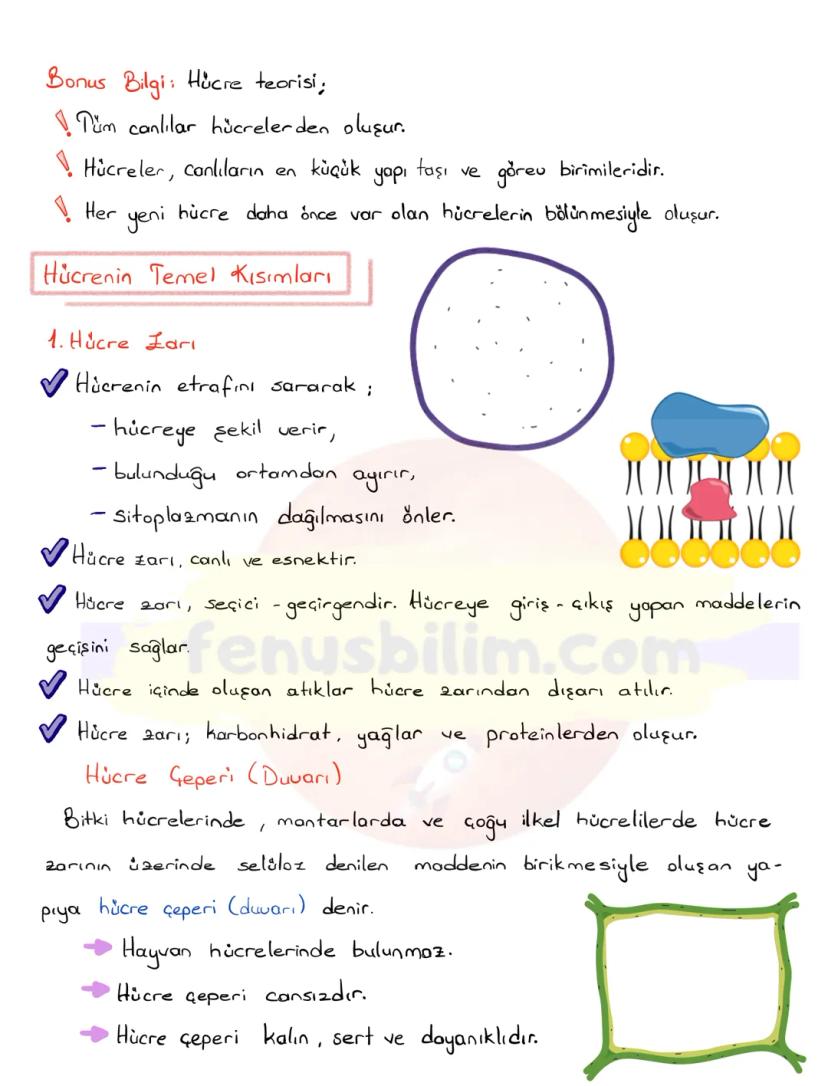 Bonus Bilgi: Hücre teorisi;
Tüm canlılar hücrelerden oluşur.
Hücreler, canlıların en küçük yapı taşı ve görev birimileridir.
Her yeni hücre daha önce var olan hücrelerin bölünmesiyle oluşur.
Hücrenin Temel Kısımları
1. Hücre Zarı
Hücrenin etrafını sararak ;
- hücreye şekil verir,
- bulunduğu ortamdan ayırır,
- sitoplazmanın dağılmasını önler.
Hücre zarı, canlı ve esnektir.
Hücre zarı, seçici - geçirgendir. Hücreye giriş - çıkış yapan maddelerin
geçişini sağlar.
fenusbilim.com
Hücre içinde oluşan atıklar hücre zarından dışarı atılır.
Hücre zarı; karbonhidrat, yağlar ve proteinlerden oluşur.
Hücre Çeperi (Duvarı)
Bitki hücrelerinde , mantarlarda ve çoğu ilkel hücrelilerde hücre
zarının üzerinde selüloz denilen maddenin birikmesiyle oluşan ya-
pıya hücre çeperi (duvarı) denir.
Hayvan hücrelerinde bulunmaz.
Hücre çeperi cansızdır.
Hücre çeperi kalın, sert ve dayanıklıdır.